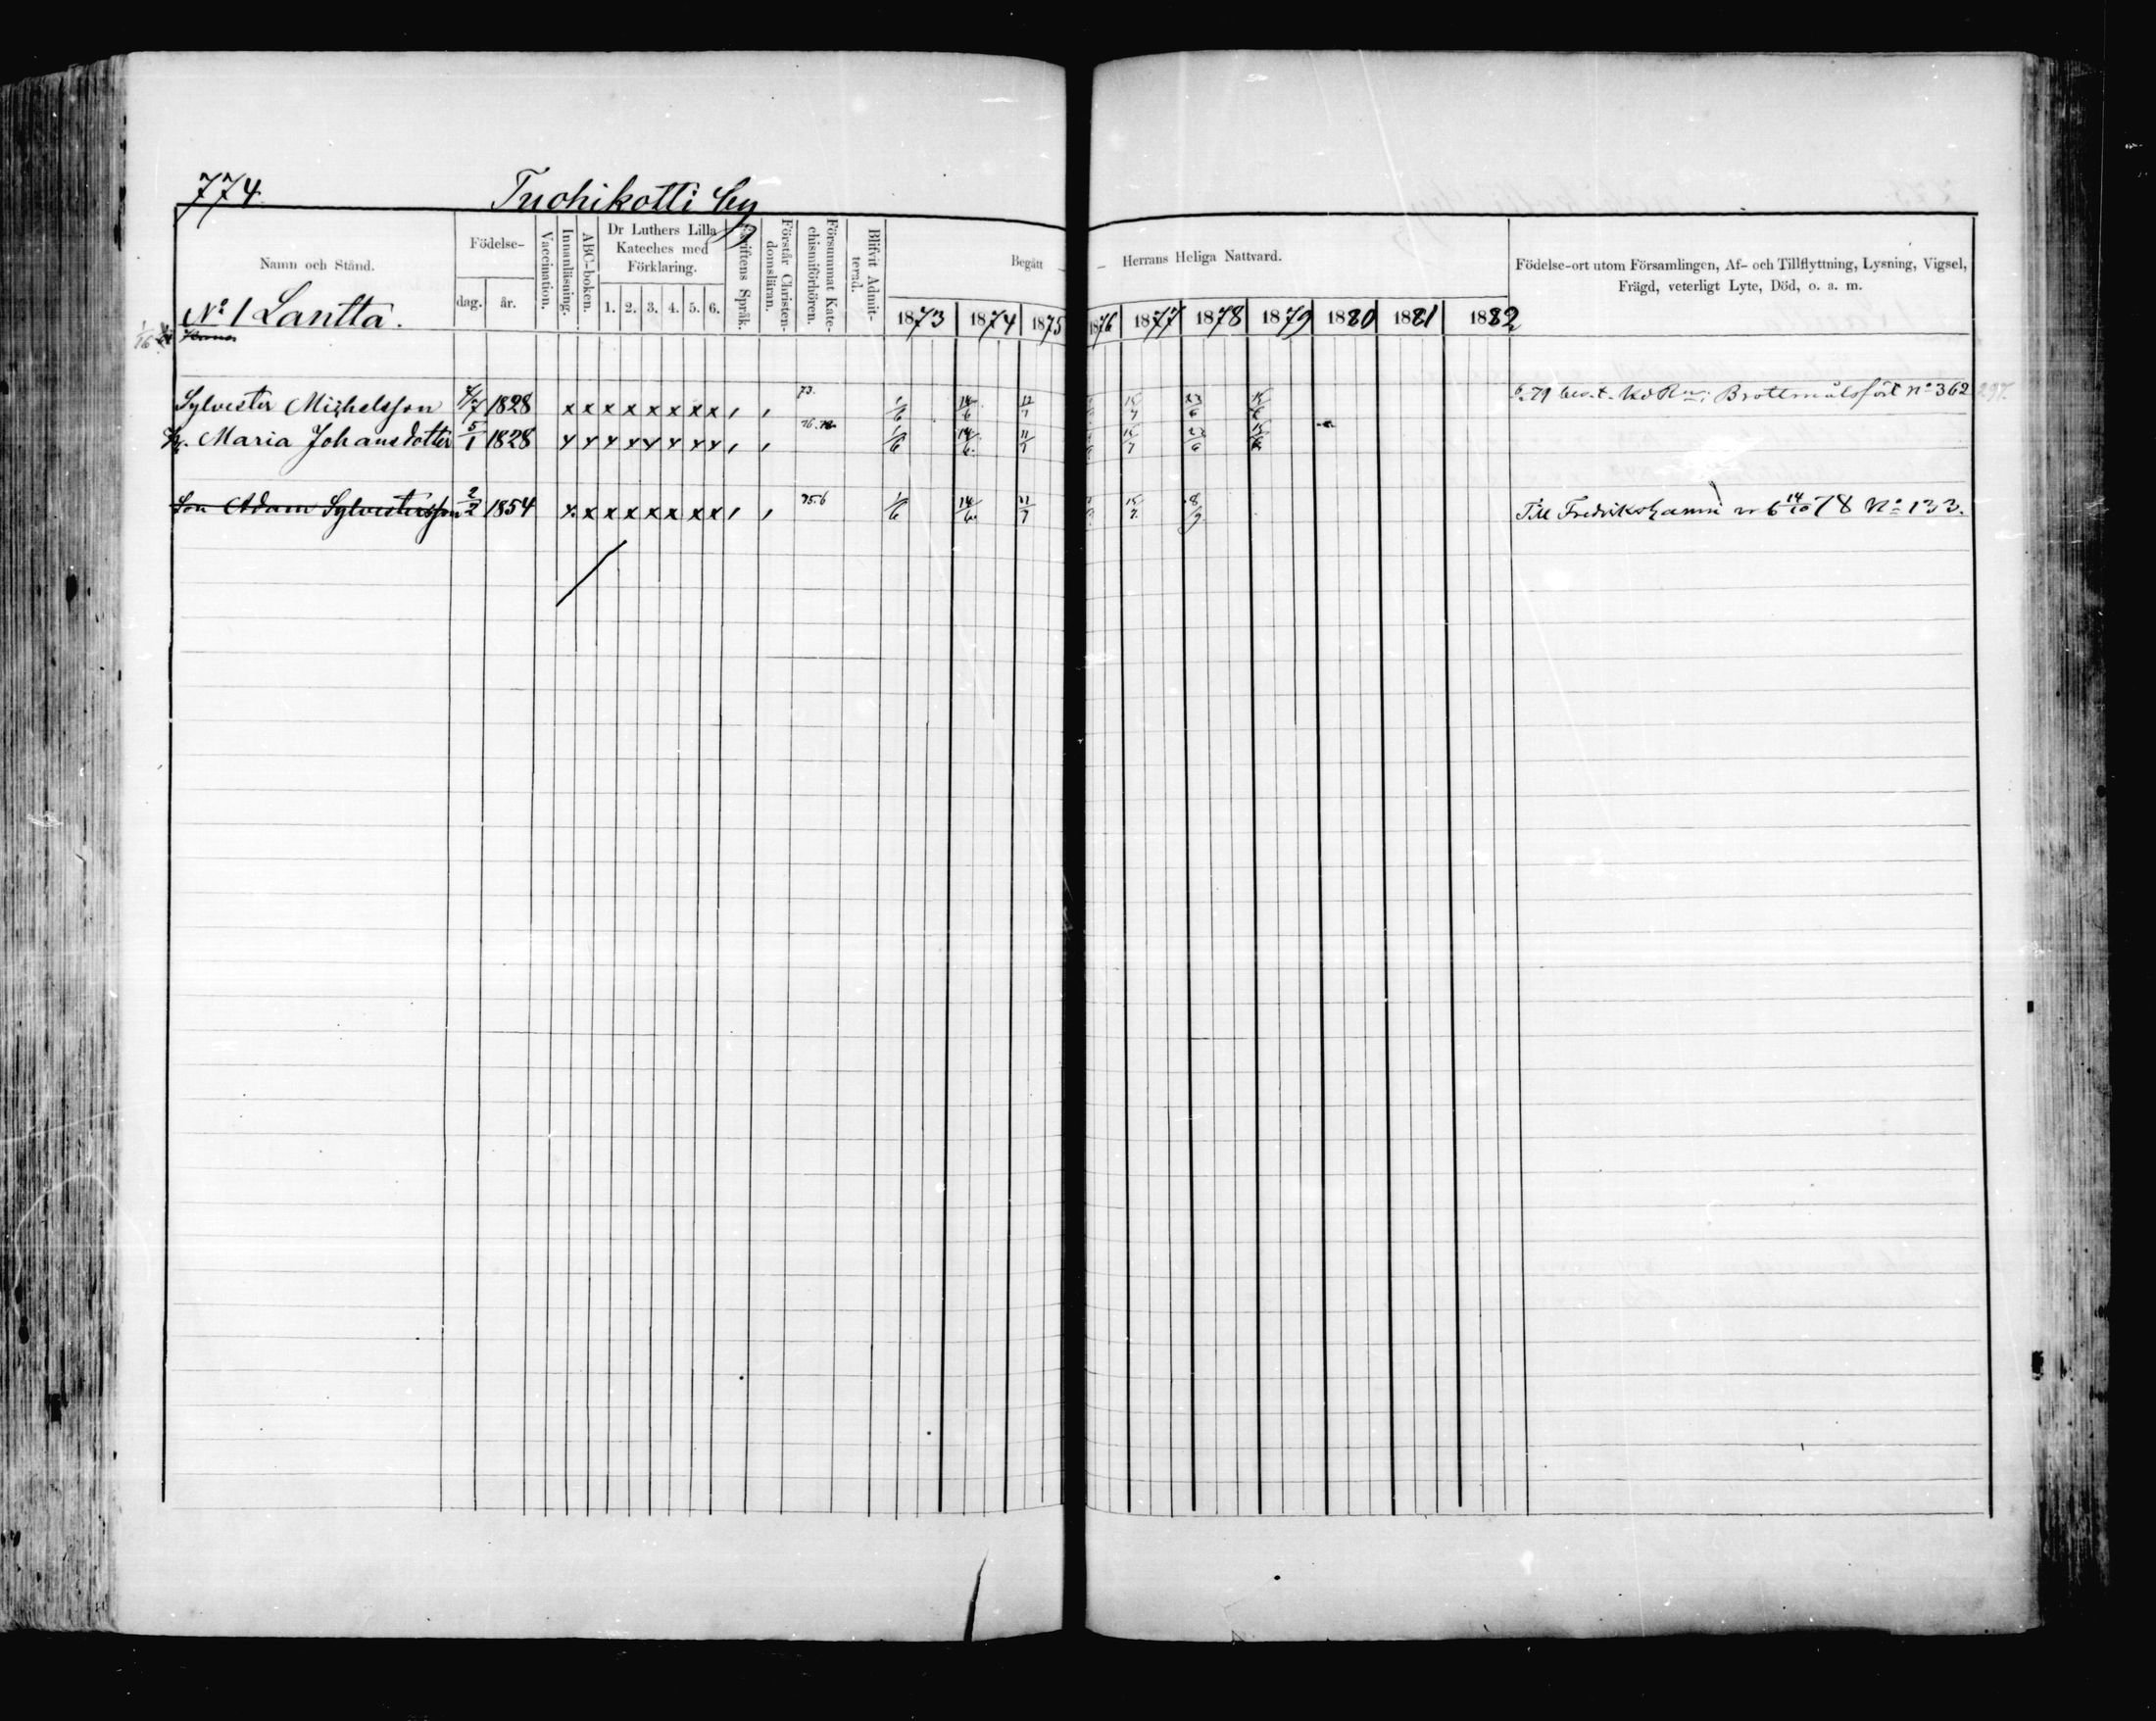 774.
Tuohikotti by
Namn och Stånd.
Födelse-
dag.
år.
Vaccination.
Innanläsning.
ABC-boken.
Dr Luthers Lilla
Kateches med
Förklaring.
1. 2. 3. 4. 5. 6.
Skriftens Språk.
Förstår Christen-
domsläran.
Försummat Kate-
chismiförhören.
Blifvit Admit-
terad.
Begått — — Herrans Heliga Nattvard.
1873 1874 1875 1876 1877 1878 1879 1880 1881 1882
Födelse-ort utom Församlingen, Af- och Tillflyttning, Lysning, Vigsel,
Frägd, veterligt Lyte, Död, o. a. m.
No 1 Lantta.
Sylvester Michelsson 1828 x x x x x x x x , , 73. 1/6 14/6 12/7 15/7 23/6 15/6 Brottmålsfört No 362 297.
H. Maria Johansdotter 5/1 1828 x x x x x x x x , , 1/6 14/6. 11/7 15/7 23/6 15/6
Son Adam Sylvestersson 2/2 1854 x x x x x x x x , , 75.6 1/6 14/6. 11/7 15/7. 8/9 Till Fredrikshamn 14/10 78 No 133.